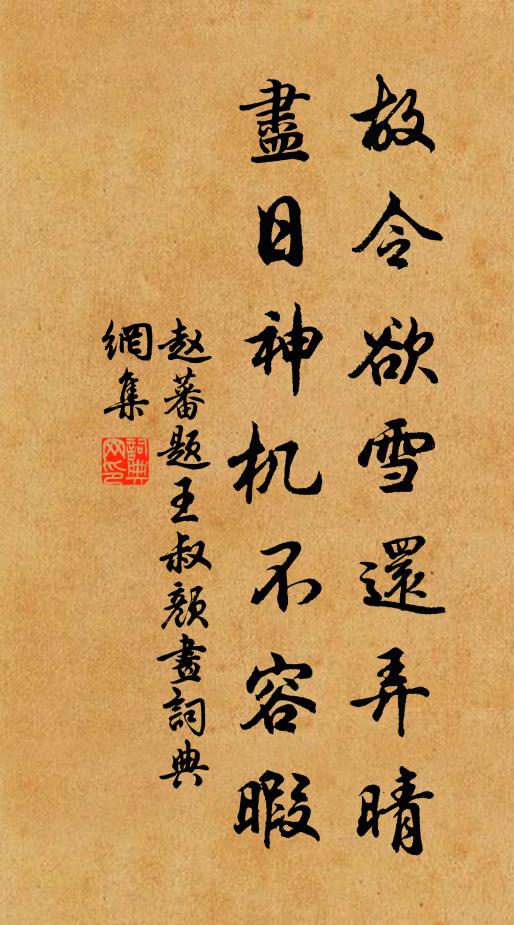 故令欲雪還弄晴
盡日神机不容暇
赵蕃題王叔顏畫詞典
網集
詞典
网印